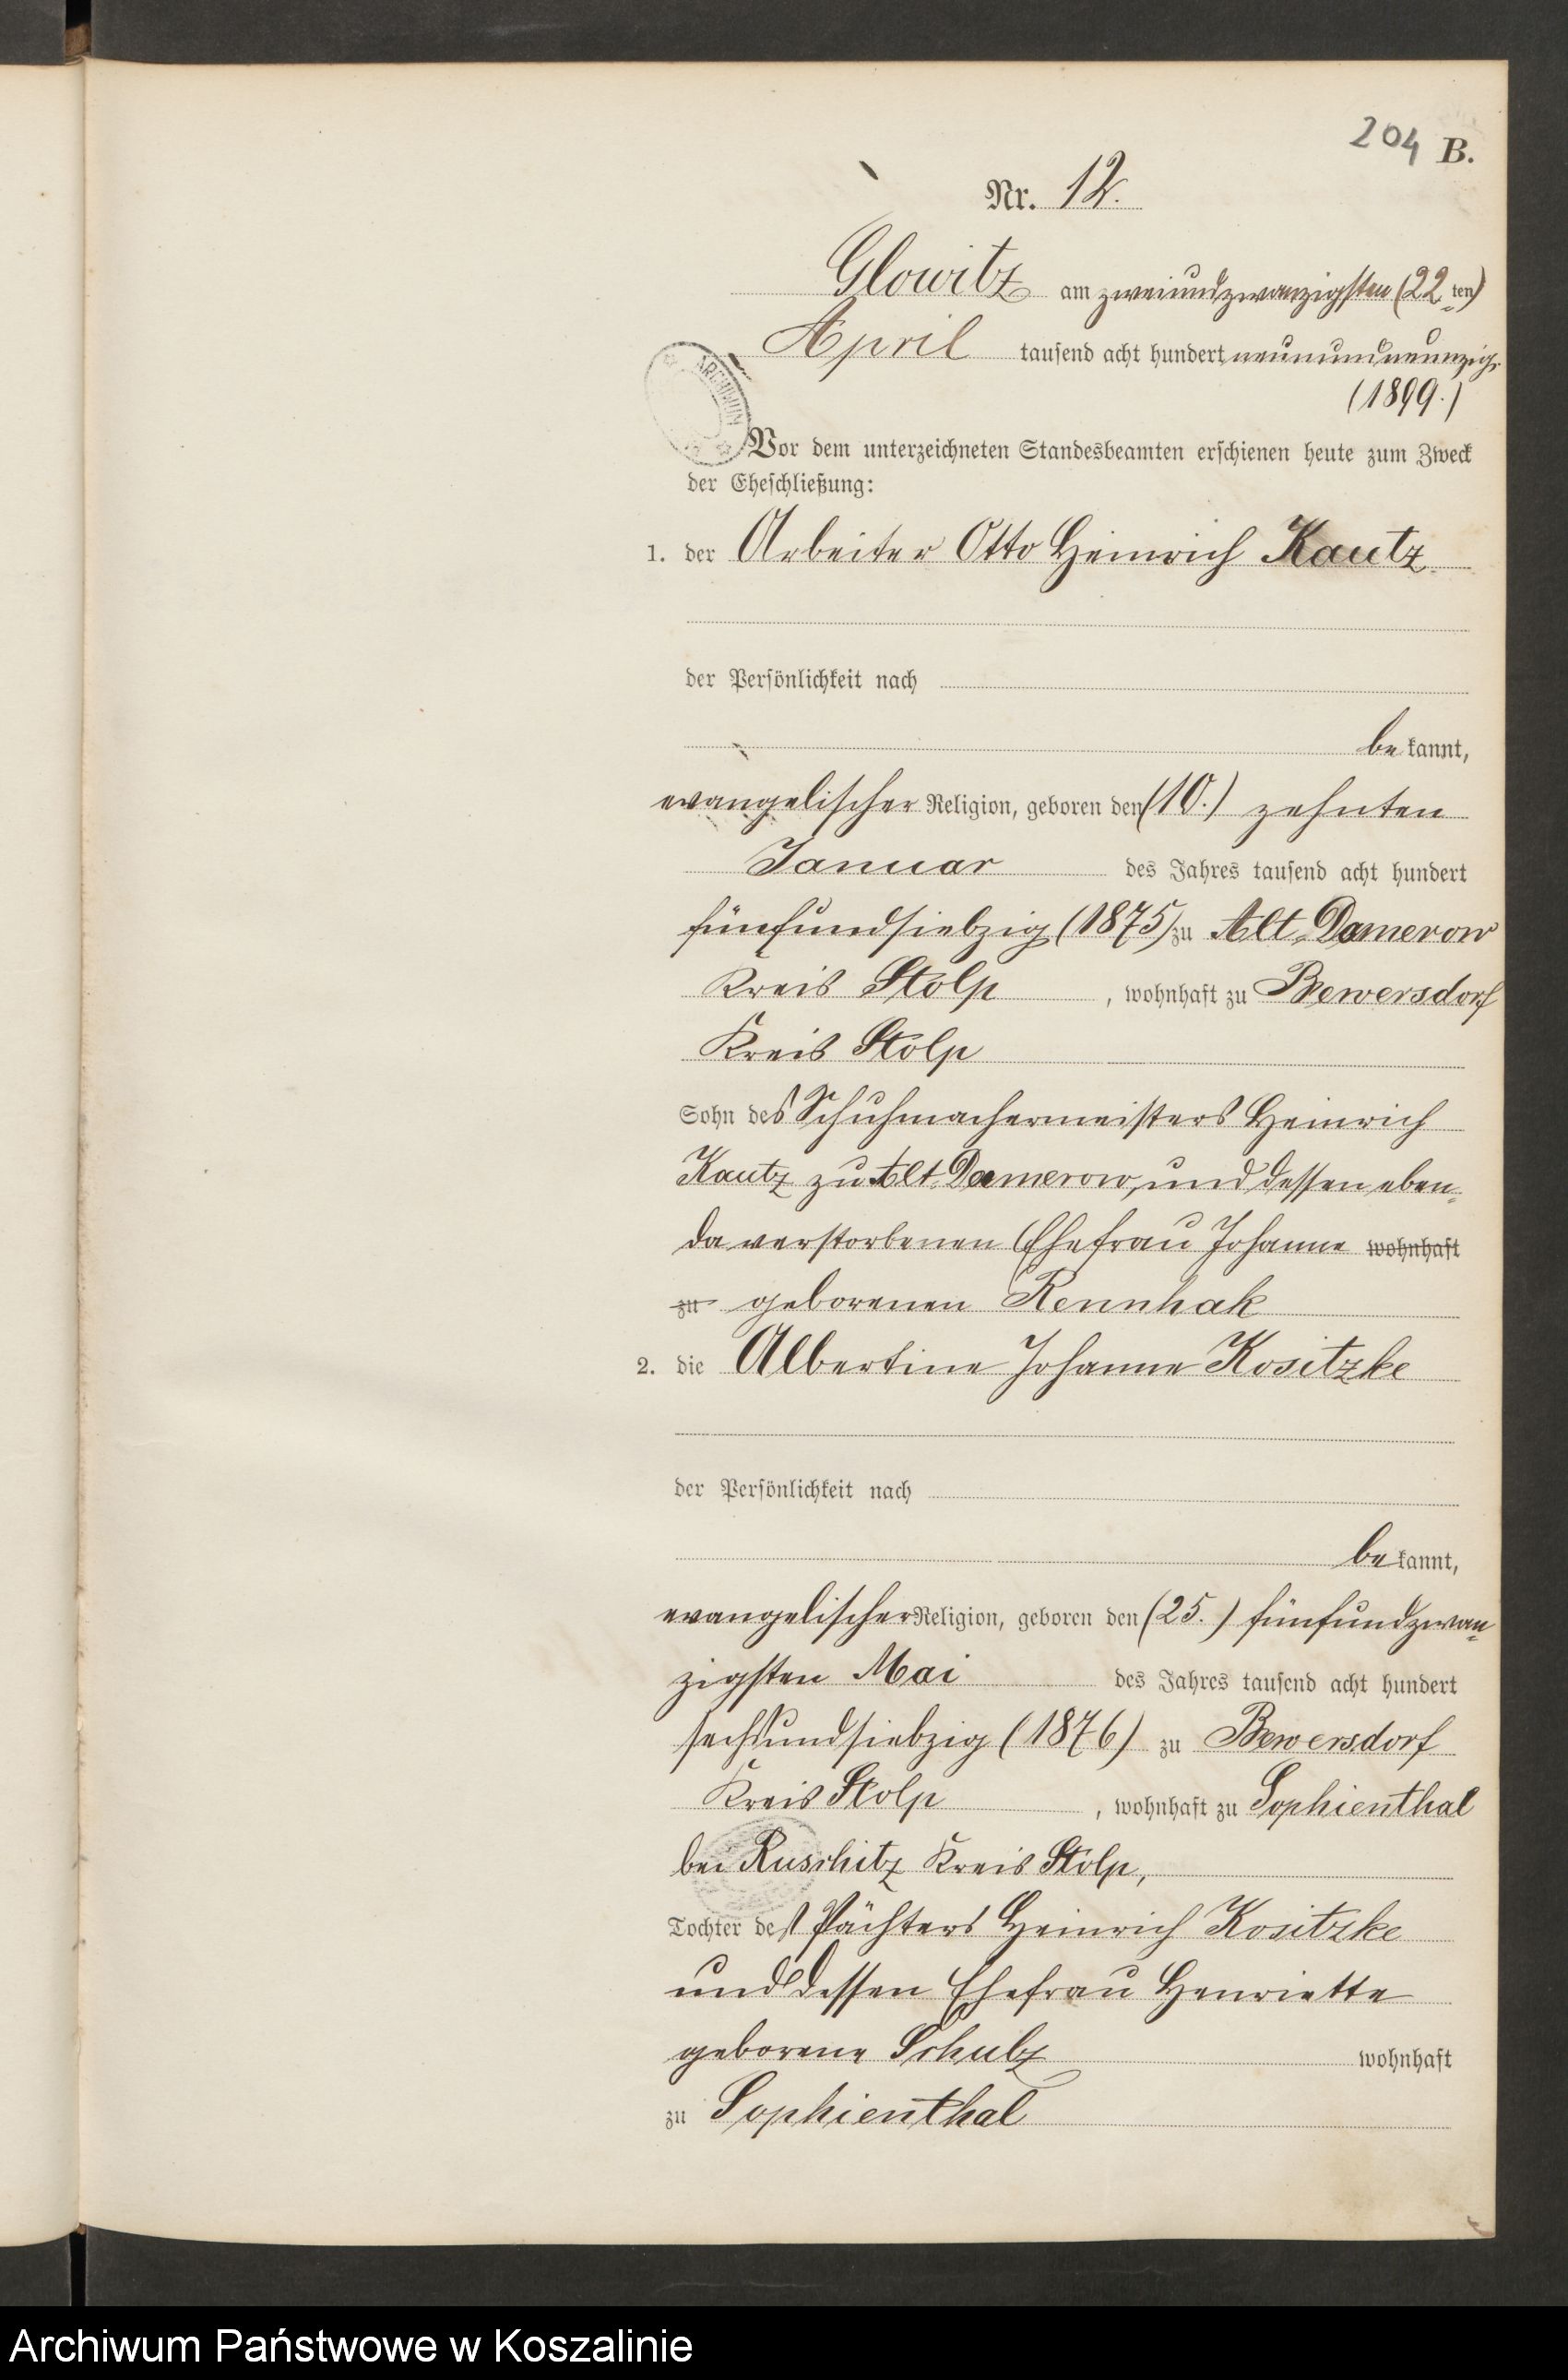 204 B.
Nr. 12.
Glowitz am zweiundzwanzigsten (22ten)
April tausend acht hundert neunundneunzig
(1899.)
ARCHIWUM
Vor dem unterzeichneten Standesbeamten erschienen heute zum Zweck
der Eheschließung:
1. der Arbeiter Otto Heinrich Kautz
der Persönlichkeit nach
bekannt,
evangelischer Religion, geboren den (10.) zehnten
Januar des Jahres tausend acht hundert
fünfundsiebzig (1875) zu Alt-Damerow
Kreis Stolp, wohnhaft zu Bewersdorf
Kreis Stolp
Sohn des Schuhmachermeisters Heinrich
Kautz zu Alt-Damerow, und dessen eben-
da verstorbenen Ehefrau Johanne wohnhaft
zu geborenen Rennhak
2. die Albertine Johanne Kositzke
der Persönlichkeit nach
bekannt,
evangelischer Religion, geboren den (25.) fünfundzwan-
zigsten Mai des Jahres tausend acht hundert
sechsundsiebzig (1876) zu Bewersdorf
Kreis Stolp, wohnhaft zu Sophienthal
bei Ruschitz Kreis Stolp,
Tochter des Pächters Heinrich Kositzke
und dessen Ehefrau Henriette
geborene Schulz wohnhaft
zu Sophienthal
Archiwum Państwowe w Koszalinie